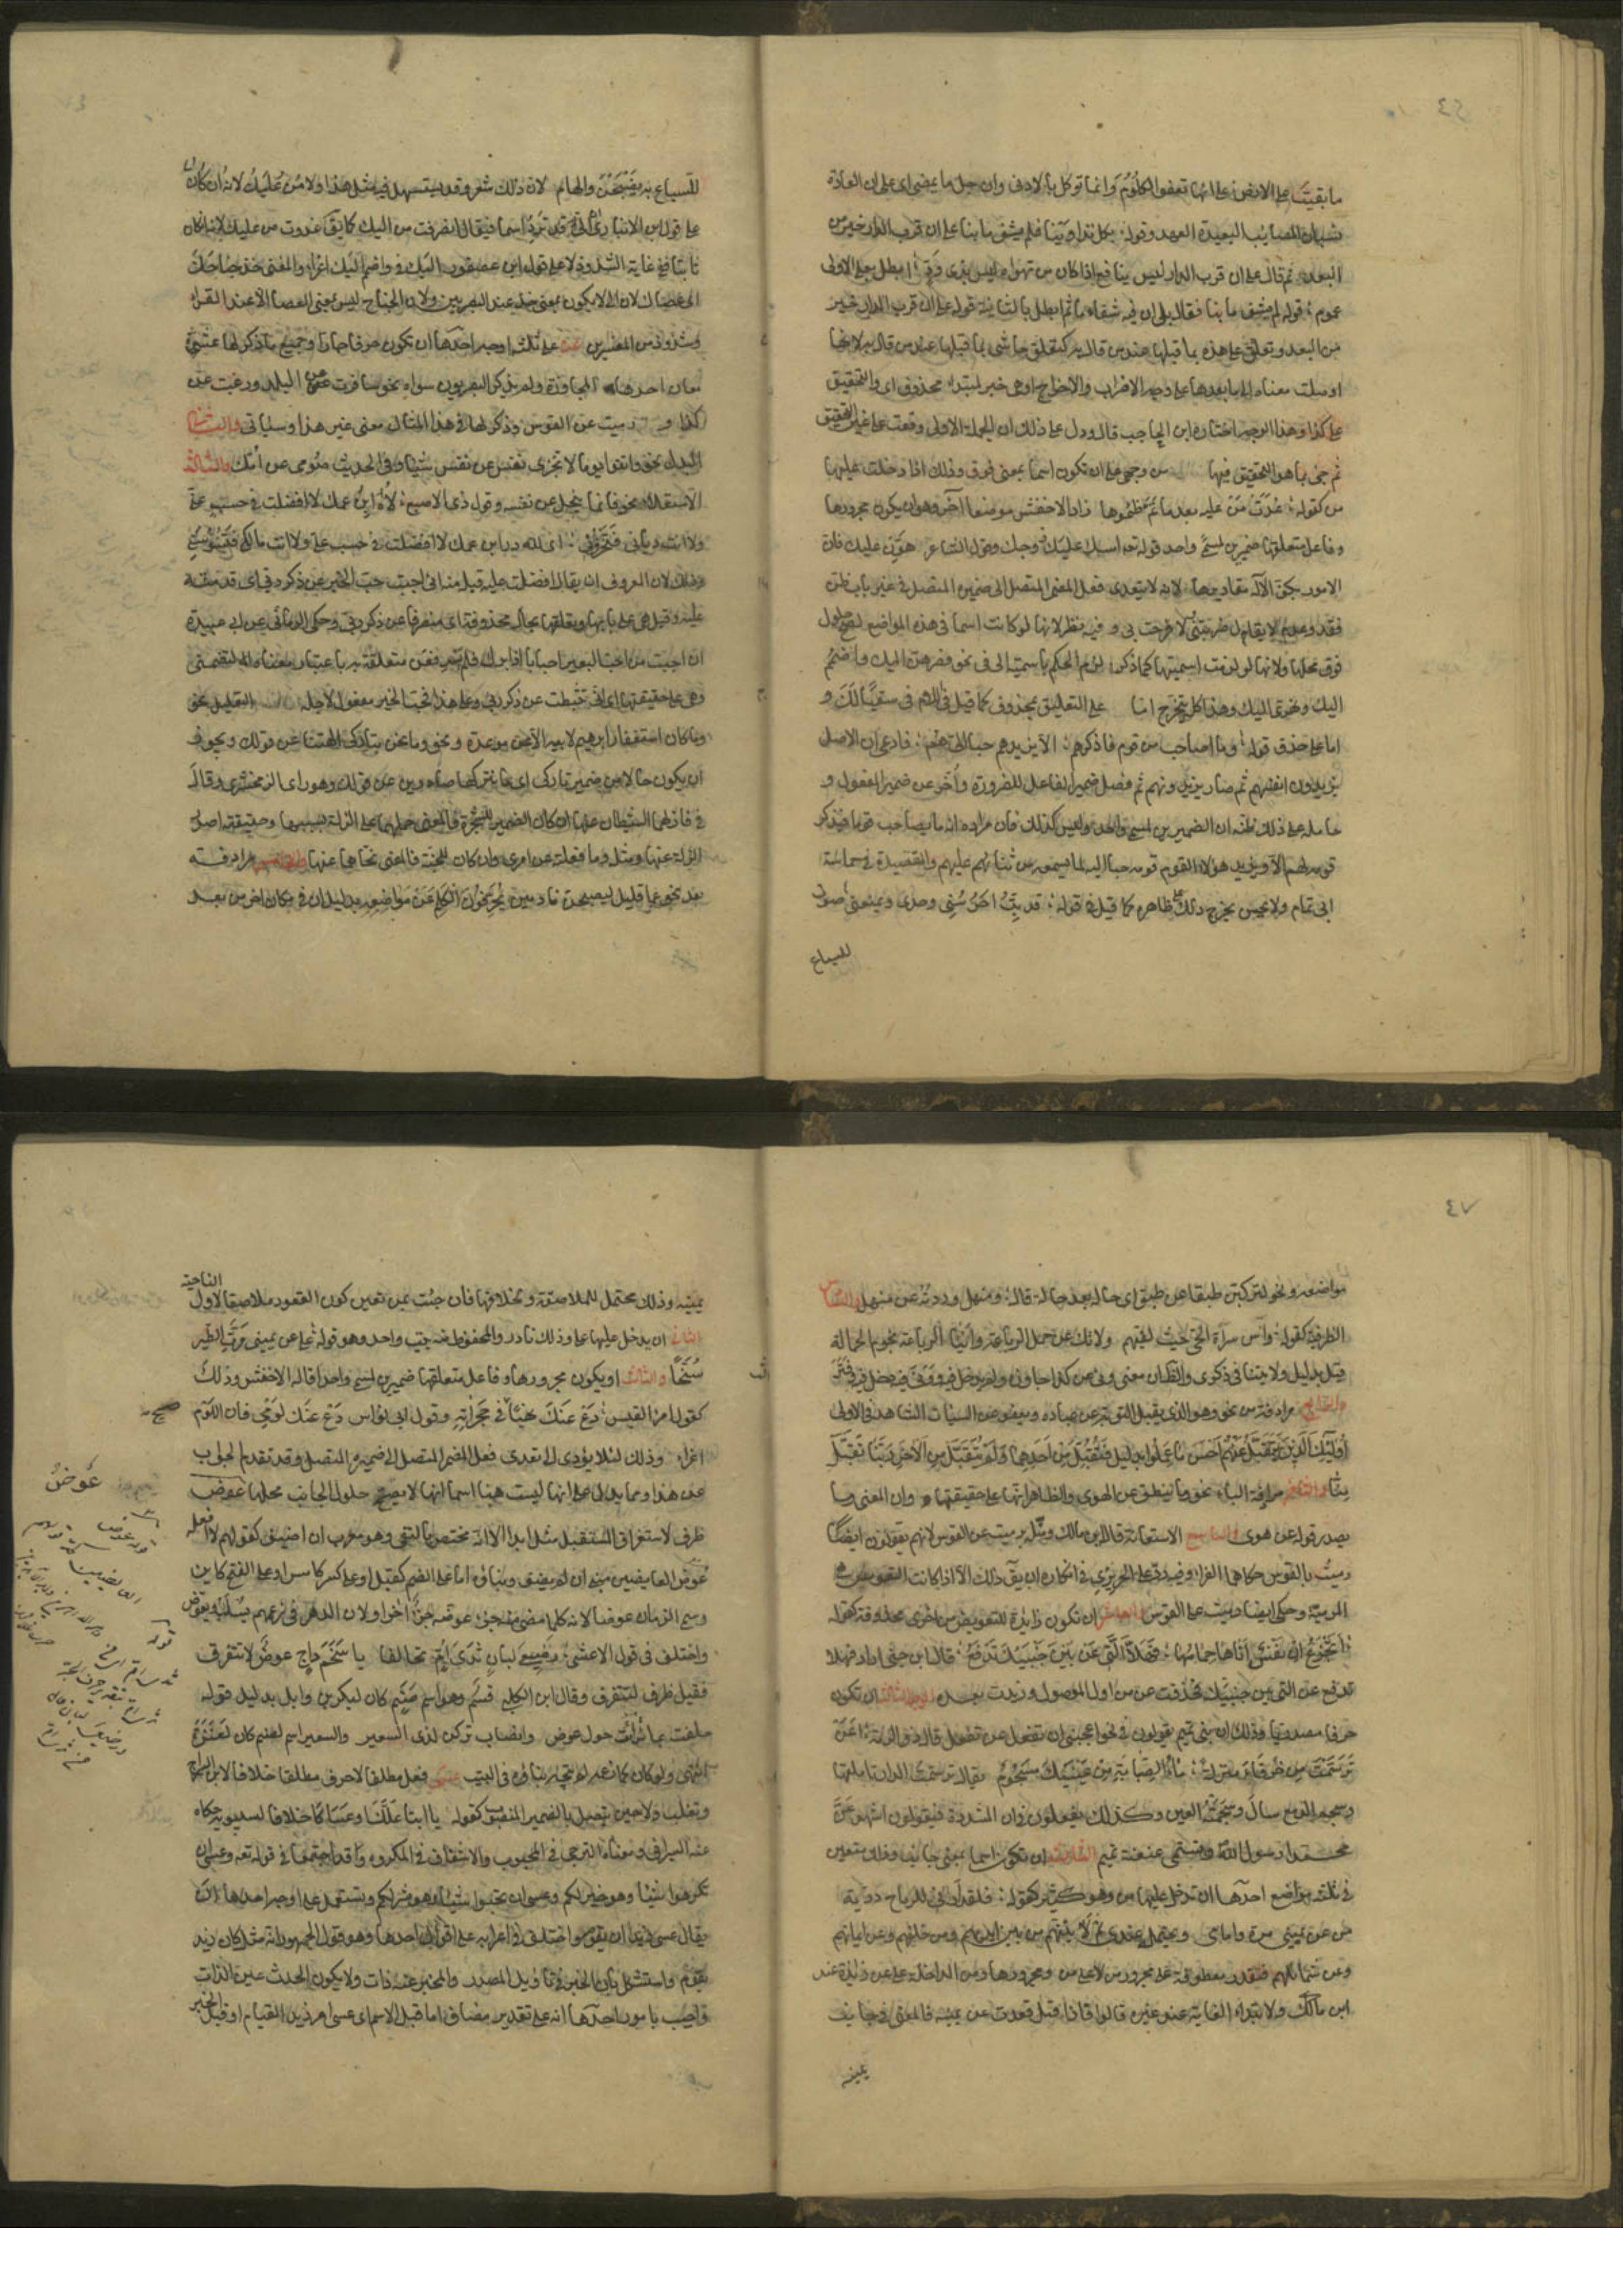 ٤٦
ما بقيت على الارض على انها تعفوا الكلوم وانما توكل بالادنى وان جل ما يمضى اى على ان العادة
نسيان المصايب البعيدة العهد وقوله بكل تداوينا فلم يشف ما بنا على ان قرب الدار خير من
البعد ثم قال على ان قرب الدار ليس بنافع اذا كان من تهواه ليس بذى ود ابطل بعلى الاولى
عموم قوله لم يشف ما بنا فقال بلى ان فيه شفاء ما ثم ابطل بالثانية قوله على ان قرب الدار خير
من البعد وتعلق على هذه بما قبلها عند من قال به كتعلق حاشى بما قبلها عند من قال به لانها
اوصلت معناه الى ما بعدها على وجه الاضراب والاخراج او هى خبر لمبتداء محذوف اى والتحقيق
على كذا وهذا الوجه اختاره ابن الحاجب قال ودل على ذلك ان الجملة الاولى وقعت على غير التحقيق
ثم جئ بما هو التحقيق فيها من وجهى على ان تكون اسما بمعنى فوق وذلك اذا دخلت عليها
من كقوله غدت من عليه بعد ما تم ظمؤها زاد الاخفش موضعا آخر وهو ان يكون مجرورها
وفاعل متعلقها ضميرين لمسمى واحد قوله تعه امسك عليك زوجك وقول الشاعر هون عليك فان
الامور بكف الاله مقاديرها لانه لا يتعدى فعل المضمر المتصل الى ضميره المتصل فى غير باب ظن
فقد وعدم لا يقال ضربتنى ولا فرحت بى وفيه نظر لانها لو كانت اسما فى هذه المواضع لصح حلول
فوق محلها ولانها لو لزمت اسميتها كما ذكر لزم الحكم باسمية الى فى نحو فصرهن اليك واضمم
اليك وهزى اليك وهذا كله يتخرج اما على التعليق بمحذوف كما قيل فى اللام فى سقيا لك و
اما على حذف قوله وما اصاحب من قوم فاذكرهم الا يزيدهم حبا الى هم فادعى ان الاصل
يزيدون انفسهم ثم صار يزيدونهم ثم فصل ضمير الفاعل للضرورة وأخر عن ضمير المفعول و
حامله على ذلك ظنه ان الضميرين لمسمى واحد وليس كذلك فان مراده انه ما يصاحب قوما فيذكر
قومه لهم الا ويزيد هؤلاء القوم قومه حبا اليه لما يسمعه من ثنائهم عليهم والقصيدة فى حماسة
ابى تمام ولا يحسن يخرج ذلك على ظاهره كما قيل فى قوله قد بت احرسنى وحدى ويمنعنى صوت
للسباع
للسباع به يضبحن والهام لان ذلك شعر وقد يستسهل فيه مثل هذا ولا من عليك لانه ان كان
على قول ابن الانبارى ان الى قد ترد اسما فيقال انصرفت من اليك كما يق غدوت من عليك لانه ان كان
ثابتا ففى غاية الشذوذ لا على قول ابن عصفور اليك فى واضمم اليك اغراء والمعنى خذ جناحك
اى عصاك لان الى لا يكون بمعنى خذ عند البصريين ولان الجناح ليس بمعنى العصا الا عند الفراء
وشذوذ من المفسرين عن على ثلثة اوجه احدها ان تكون حرفا جارا وجميع ما ذكر لها عشرة
معان احدها المجاوزة ولم يذكر البصريون سواه نحو سافرت عن البلد ورغبت عن
كذا و رميت عن القوس وذكر لها فى هذا المثال معنى غير هذا وسياتى والثانى
البدل نحو واتقوا يوما لا تجزى نفس عن نفس شيئا وفى الحديث صومى عن امك والثالث
الاستعلاء نحو فانما يبخل عن نفسه وقول ذى الاصبع لاه ابن عمك لا افضلت فى حسب عنى
ولا انت ديانى فتخزونى اى لله در ابن عمك لا افضلت فى حسب على ولا انت مالكى فتسوسنى
وذلك لان المعروف ان يقال افضلت عليه قيل منه انى احببت حب الخير عن ذكر ربى اى قدمته
عليه وقيل هى على بابها وتعلقها بحال محذوفة اى منصرفا عن ذكر ربى وحكى الرمانى عن ابى عبيدة
ان احببت من احب البعير احبابا اذا برك فلم يثر فعن متعلقة به باعتبار معناه التضمنى
وهى على حقيقتها اى انى تثبطت عن ذكر ربى وعلى هذا فحب الخير مفعول لاجله التعليل نحو
وما كان استغفار ابرهيم لابيه الا عن موعدة ونحو وما نحن بتاركى الهتنا عن قولك ويجوز
ان يكون حالا من ضمير تاركى اى ما نتركها صادرين عن قولك وهو راى الزمخشرى وقال
فى فازلهما الشيطان عنها ان كان الضمير للشجرة فالمعنى حملهما على الزلة بسببها وحقيقته اصدر
الزلة عنها ومثله وما فعلته عن امرى وان كان للجنة فالمعنى نحاهما عنها والخامس مرادفة
بعد نحو عما قليل ليصبحن نادمين يحرفون الكلم عن مواضعه بدليل ان فى مكان اخر من بعد
٤٧
مواضعه ونحو لتركبن طبقا عن طبق اى حاله بعد حالة قال ومنهل وردته عن منهل والسادس
الظرفية كقوله وآس سراة الحى حيث لقيتهم ولا تك عن حمل الرباعة وانيا الرباعة نجوم الحمالة
قيل بدليل ولا تنيا فى ذكرى والظاهر ان معنى ونى عن كذا جاوزه ولم يدخل فيه وونى فيه دخل فيه وفتر
والسابع مرادفة من نحو وهو الذى يقبل التوبة عن عباده ويعفو عن السيئات الشاهد فى الاولى
أولئك الذين نتقبل عنهم احسن ما عملوا بدليل فتقبل من احدهما ولم يتقبل من الاخر ربنا تقبل
منا والثامن مرادفة الباء نحو وما ينطق عن الهوى والظاهر انها على حقيقتها وان المعنى وما
يصدر قوله عن هوى والتاسع الاستعانة قاله ابن مالك ومثل برميت عن القوس لانهم يقولون ايضا
رميت بالقوس حكاهما الفراء وفيه رد على الحريرى فى انكاره ان يق ذلك الا اذا كانت القوس هى
المرمية وحكى ايضا رميت على القوس والعاشر ان تكون زايدة للتعويض من اخرى محذوفة كقوله
أتجزع ان نفس أتاها حمامها فهلا التى عن بين جنبيك تدفع قال ابن جنى اراد فهلا
تدفع عن التى بين جنبيك فحذفت عن من اول الموصول وزيدت بعده الوجه الثانى ان تكون
حرفا مصدريا وذلك ان بنى تميم يقولون فى نحو اعجبنى ان تفعل عن تفعل قال ذو الرمة أعن
ترسمت من خرقاء منزلة ماء الصبابة من عينيك مسجوم يقال ترسمت الدار تاملتها
وسجم الدمع سال وسجمته العين وكذلك يفعلون فى ان المشددة فيقولون اشهد عن
محمدا رسول الله وتسمى عنعنة تميم الثالث ان تكون اسما بمعنى جانب وذلك متعين
فى ثلثة مواضع احدها ان تدخل عليها من وهو كثير كقوله فلقد أرانى للرماح دريئة
من عن يمينى مرة وامامى ويحتمله عندى ثم لآتينهم من بين ايديهم ومن خلفهم وعن ايمانهم
وعن شمائلهم فتقدر معطوفة على مجرور من لا على من ومجرورها ومن الداخلة على عن زايدة عند
ابن مالك ولابتداء الغاية عند غيره قالوا فاذا قيل قعدت عن يمينه فالمعنى فى جانب
يمينه
يمينه وذلك محتمل للملاصقة وبخلافها فان جئت بمن تعين كون القعود ملاصقا لاول الناحية
الثانى ان يدخل عليها على وذلك نادر والمحفوظ منه بيت واحد وهو قوله على عن يمينى مرت الطير
سنحا والثالث ان يكون مجرورها وفاعل متعلقها ضميرين لمسمى واحد قاله الاخفش وذلك
كقول امرئ القيس دع عنك نهبا صيح فى حجراته وقول ابى نواس دع عنك لومى فان اللوم
اغراء وذلك لئلا يؤدى الى تعدى فعل المضمر المتصل الى ضميره المتصل وقد تقدم الجواب
عن هذا ومما يدل على انها ليست هنا اسما انها لا يصح حلول الجانب محلها عوض
ظرف لاستغراق المستقبل مثل ابدا الا انه مختص بالنفى وهو معرب ان اضيف كقولهم لا افعله
عوض العائضين مبنى ان لم يضف وبناؤه اما على الضم كقبل او على الكسر كامس او على الفتح كاين
وسمى الزمان عوضا لانه كلما مضى منه جزء عوضه جزء اخر او لان الدهر فى زعمهم يسلب ويعوض
واختلف فى قول الاعشى رضيعى لبان ثدى ام تحالفا باسحم داج عوض لا نتفرق
فقيل ظرف لنتفرق وقال ابن الكلبى قسم وهو اسم صنم كان لبكر بن وايل بدليل قوله
حلفت بمائرات حول عوض وانصاب تركن لدى السعير والسعير اسم لصنم كان لعنزة
انتهى ولو كان كما زعم لم يتجه بناؤه فى البيت عسى فعل مطلقا لا حرف مطلقا خلافا لابن السراج
وثعلب ولا حين يتصل بالضمير المنصوب كقوله يا ابتا علك او عساكا خلافا لسيبويه حكاه
عنه السيرافى ومعناه الترجى فى المحبوب والاشفاق فى المكروه وقد اجتمعا فى قوله تعه وعسى ان
تكرهوا شيئا وهو خير لكم وعسى ان تحبوا شيئا وهو شر لكم وتستعمل على اوجه احدها ان
يقال عسى زيد ان يقوم واختلف فى اعرابه على اقوال احدها وهو قول الجمهور انه مثل كان زيد
يقوم واستشكل بان الخبر فى تأويل المصدر والمخبر عنه ذات ولا يكون الحدث عين الذات
واجيب بامور احدها انه على تقدير مضاف اما قبل الاسم اى عسى امر زيد القيام او قبل الخبر
عوض